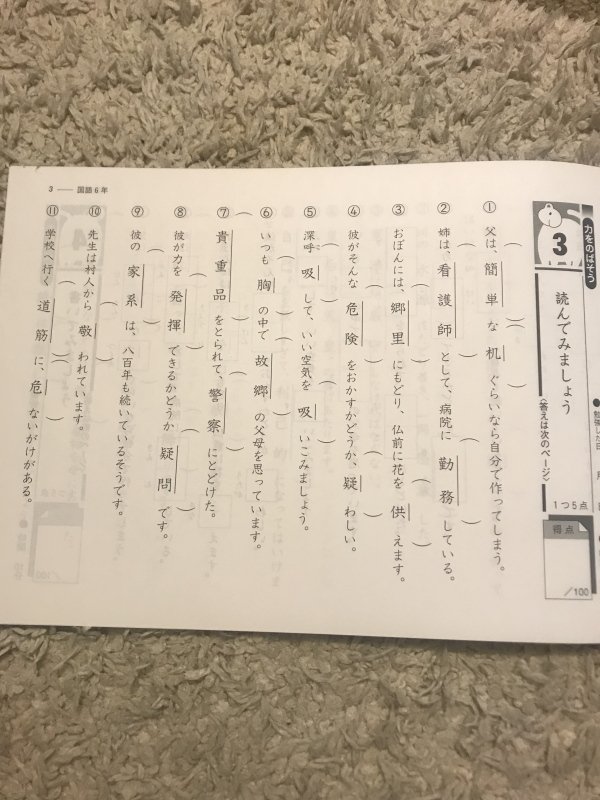 力をのばそう
3
読んでみましょう
〈答えは次のページ〉
1つ5点
得点
/100
① 父は、簡単な机ぐらいなら自分で作ってしまう。
② 姉は、看護師として、病院に勤務している。
③ おぼんには、郷里にもどり、仏前に花を供えます。
④ 彼がそんな危険をおかすかどうか、疑わしい。
⑤ 深呼吸して、いい空気を吸いこみましょう。
⑥ いつも胸の中で故郷の父母を思っています。
⑦ 貴重品をとられて、警察にとどけた。
⑧ 彼が力を発揮できるかどうか疑問です。
⑨ 彼の家系は、八百年も続いているそうです。
⑩ 先生は村人から敬われています。
⑪ 学校へ行く道筋に、危ないがけがある。
3 ── 国語6年